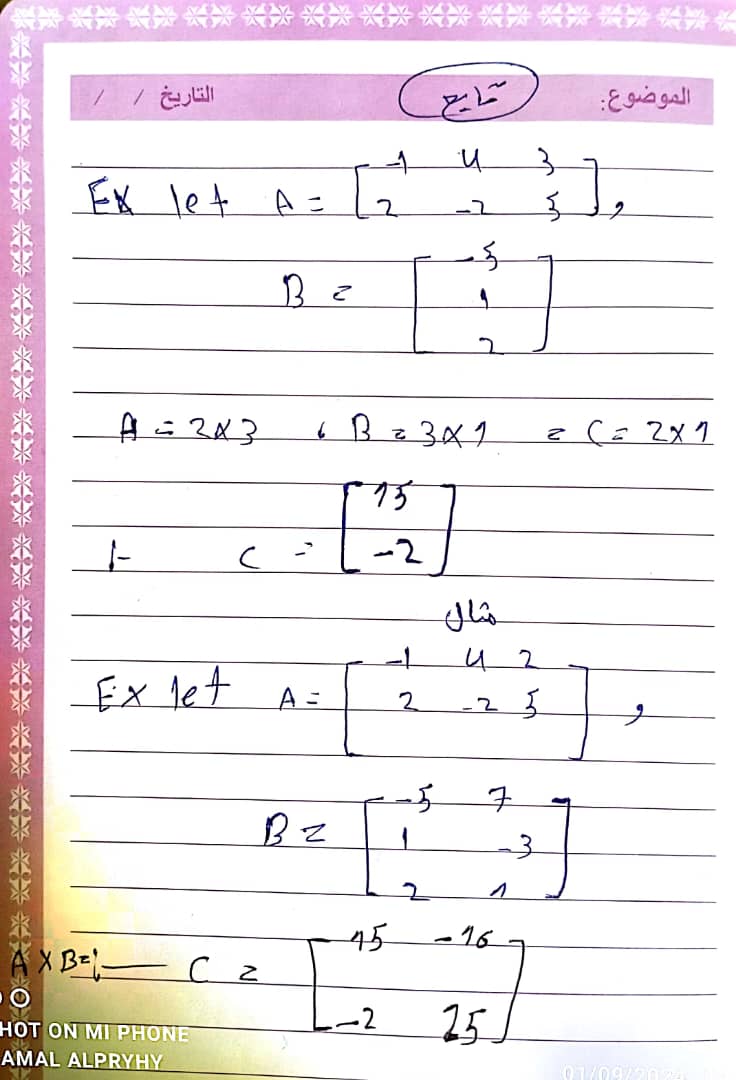 الموضوع: تابع التاريخ / /
Ex let A = [ -1 4 3
2 -2 5 ] ,
B = [ -5
1
2 ]
A = 2x3 , B = 3x1 = C = 2x1
C = [ 15
-2 ]
مثال
Ex let A = [ -1 4 2
2 -2 5 ] ,
B = [ -5 7
1 -3
2 1 ]
A X B = C = [ 15 -16
-2 25 ]
HOT ON MI PHONE
AMAL ALPRYHY
01/09/2024